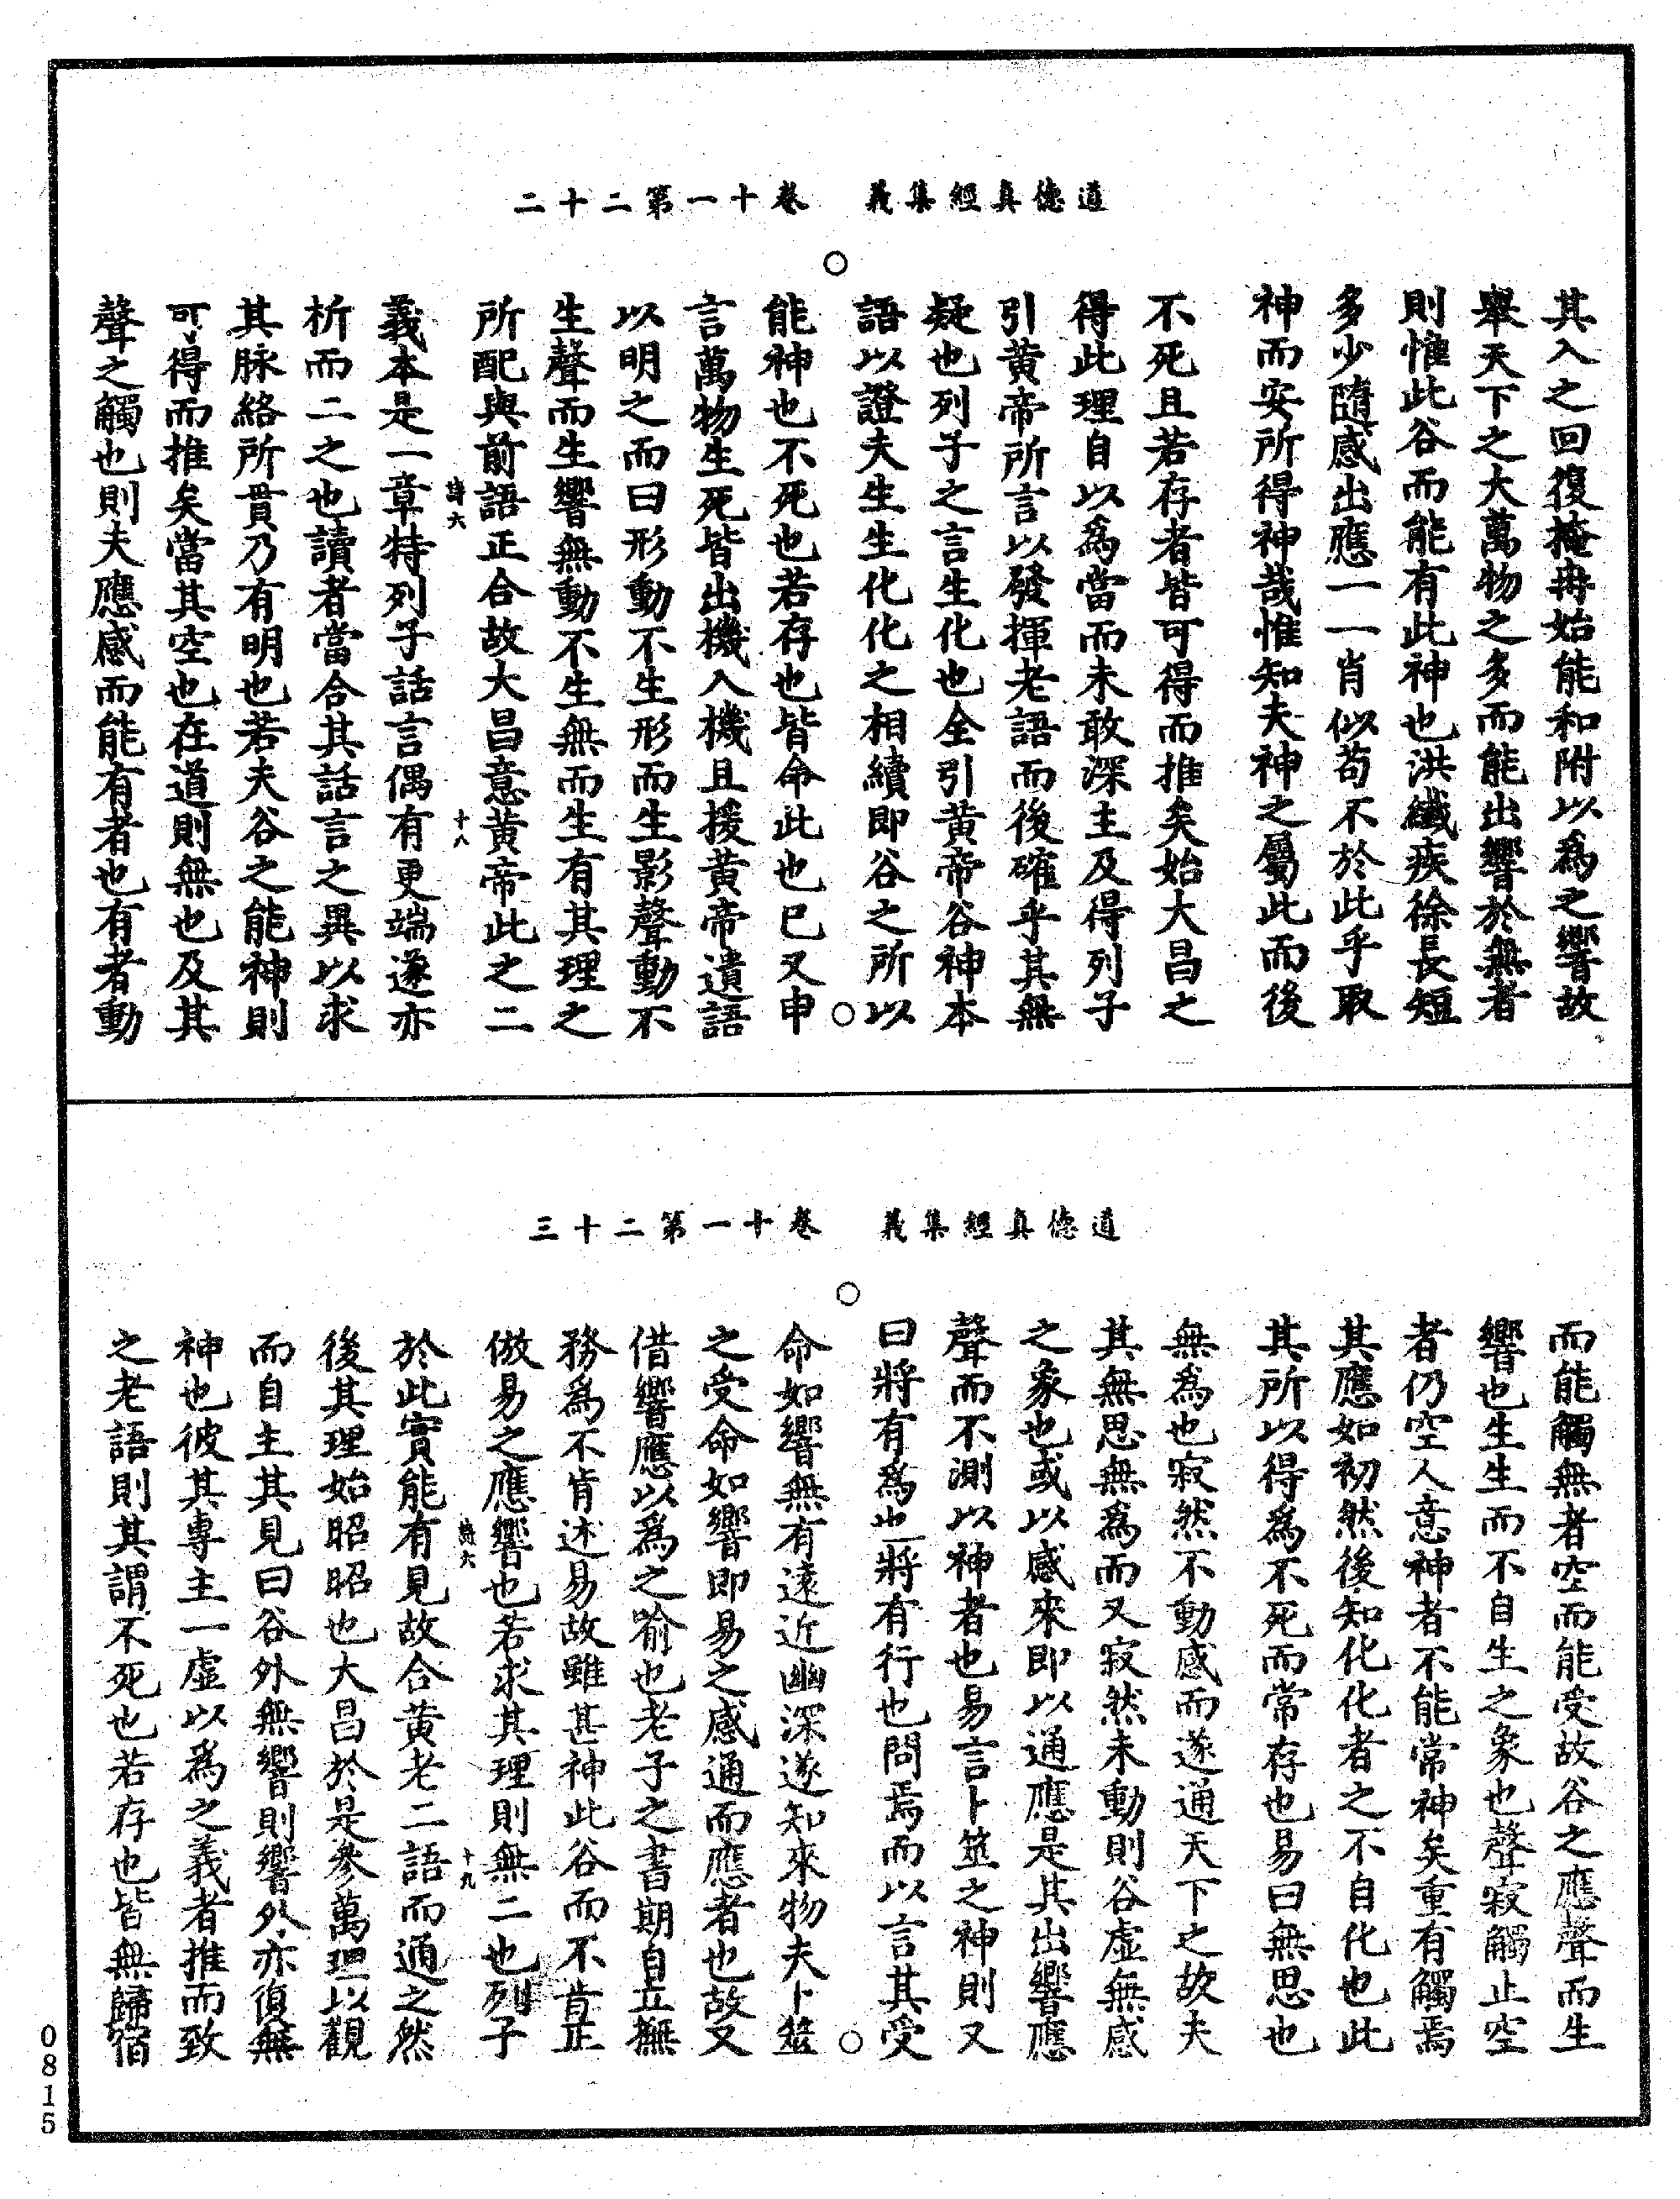 道德真經集義　卷十一第二十二
其入之回復掩冉始能和附以為之響故
舉天下之大萬物之多而能出響於無者
則惟此谷而能有此神也洪纖疾徐長短
多少隨感出應一一肖似苟不於此乎取
神而安所得神哉惟知夫神之屬此而後
不死且若存者皆可得而推矣始大昌之
得此理自以為當而未敢深主及得列子
引黃帝所言以發揮老語而後確乎其無
疑也列子之言生化也全引黃帝谷神本
語以證夫生生化化之相續即谷之所以
能神也不死也若存也皆命此也已又申
言萬物生死皆出機入機且援黃帝遺語
以明之而曰形動不生形而生影聲動不
生聲而生響無動不生無而生有其理之
所配與前語正合故大昌意黃帝此之二
詩六　十八
義本是一章特列子話言偶有更端遂亦
析而二之也讀者當合其話言之異以求
其脉絡所貫乃有明也若夫谷之能神則
可得而推矣當其空也在道則無也及其
聲之觸也則夫應感而能有者也有者動
道德真經集義　卷十一第二十三
而能觸無者空而能受故谷之應聲而生
響也生生而不自生之象也聲寂觸止空
者仍空人意神者不能常神矣重有觸焉
其應如初然後知化化者之不自化也此
其所以得為不死而常存也易曰無思也
無為也寂然不動感而遂通天下之故夫
其無思無為而又寂然未動則谷虛無感
之象也或以感來即以通應是其出響應
聲而不測以神者也易言卜筮之神則又
曰將有為也將有行也問焉而以言其受
命如響無有遠近幽深遂知來物夫卜筮
之受命如響即易之感通而應者也故又
借響應以為之喻也老子之書期自立無
務為不肯述易故雖甚神此谷而不肯正
倣易之應響也若求其理則無二也列子
詩六　十九
於此實能有見故合黃老二語而通之然
後其理始昭昭也大昌於是參萬理以觀
而自主其見曰谷外無響則響外亦復無
神也彼其專主一虛以為之義者推而致
之老語則其謂不死也若存也皆無歸宿
0815